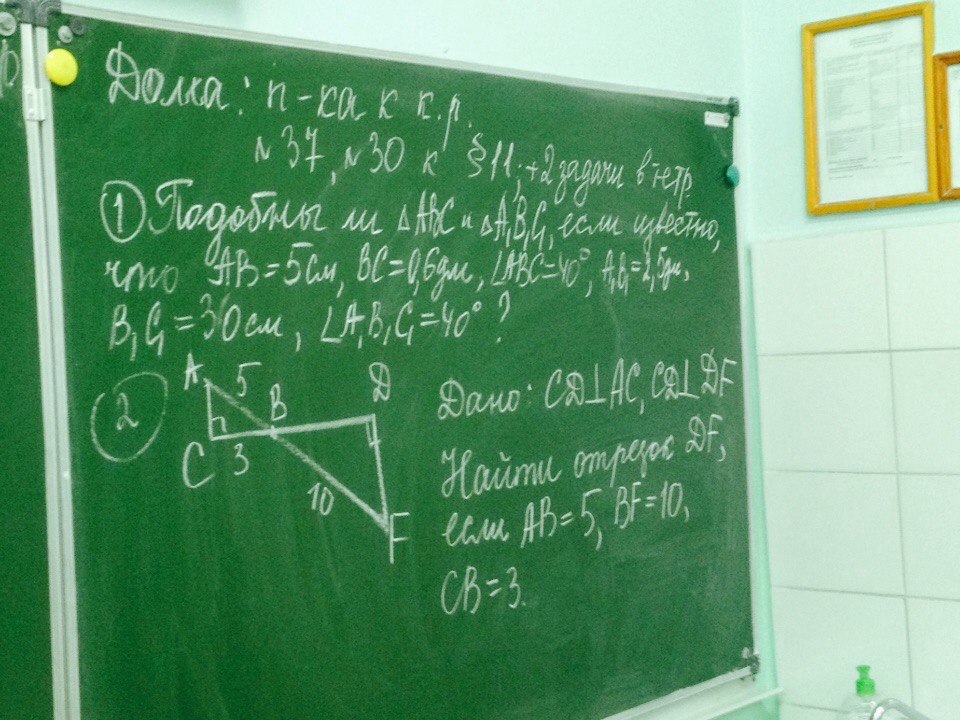 Домка: п-ка к к.р.
№37, №30 к §11, +2 задачи в тетр
① Подобны ли △ABC и △A₁B₁C₁, если известно,
что AB=5см, BC=0,6дм, ∠ABC=40°, A₁B₁=2,5дм,
B₁C₁=30см, ∠A₁B₁C₁=40°?
②
A 5 B D
C 3 10 F
Дано: CD⊥AC, CD⊥DF
Найти отрезок DF,
если AB=5, BF=10,
CB=3.